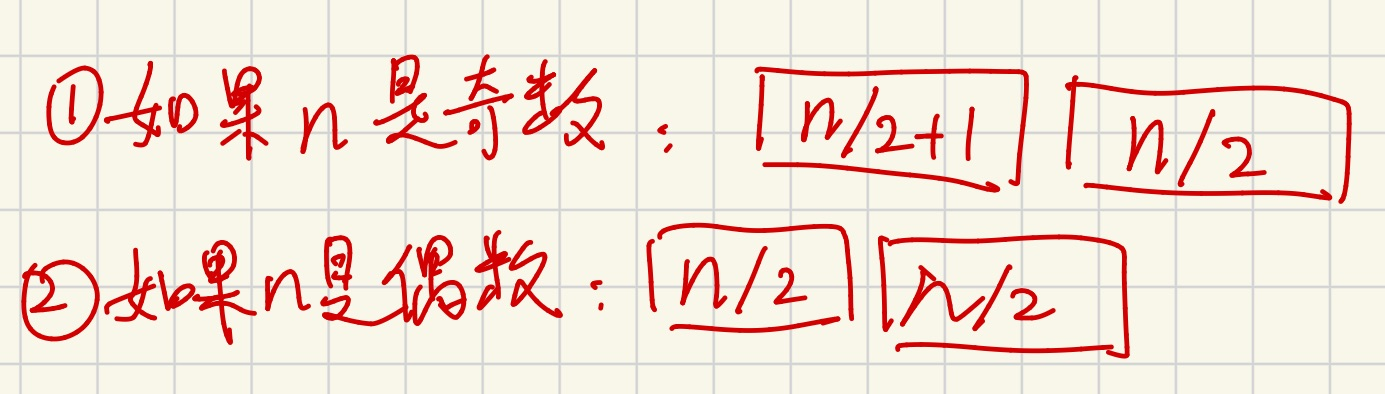 ①如果n是奇数：n/2+1 n/2
②如果n是偶数：n/2 n/2